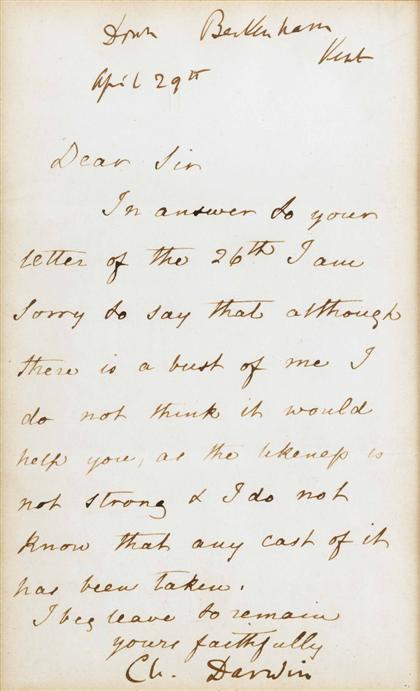 Down Beckenham
Kent
April 29th
Dear Sir
In answer to your
letter of the 26th I am
sorry to say that although
there is a bust of me I
do not think it would
help you, as the likeness is
not strong & I do not
know that any cast of it
has been taken.
I beg leave to remain
yours faithfully
Ch. Darwin